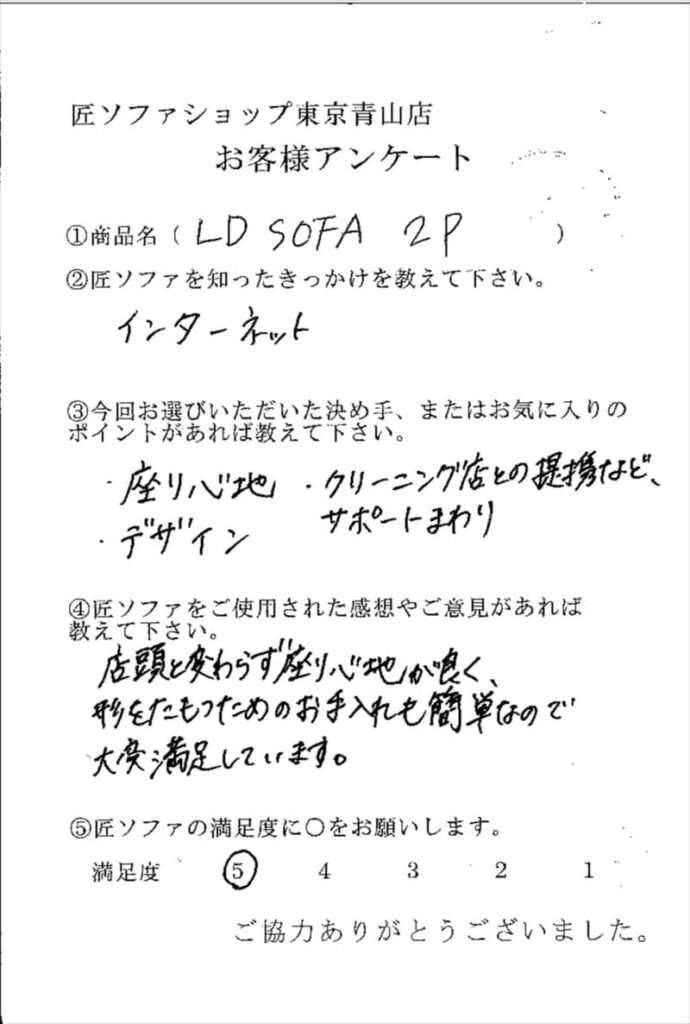 匠ソファショップ東京青山店
お客様アンケート
①商品名（ LD SOFA 2P ）
②匠ソファを知ったきっかけを教えて下さい。
インターネット
③今回お選びいただいた決め手、またはお気に入りの
ポイントがあれば教えて下さい。
・座り心地 ・クリーニング店との提携など、
・デザイン サポートまわり
④匠ソファをご使用された感想やご意見があれば
教えて下さい。
店頭と変わらず座り心地が良く、
形をたもつためのお手入れも簡単なので
大変満足しています。
⑤匠ソファの満足度に〇をお願いします。
満足度 5 4 3 2 1
ご協力ありがとうございました。